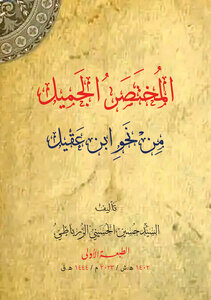 المُختَصَرُ الجَمِيل
مِن نَحوِ ابنِ عَقِيل
تأليف
السيّد حسين الحسيني الزرباطي
الطبعة الأولى
١٤٠٢ هـ.ش / ٢٠٢٣ م / ١٤٤٤ هـ.ق